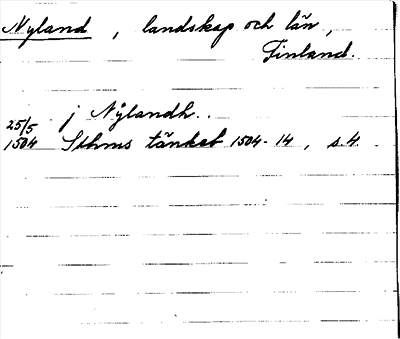 Nyland, landskap och län,
Finland.
25/5 j Nylandh..
1504 Sthms tänkeb 1504-14, s. 4.